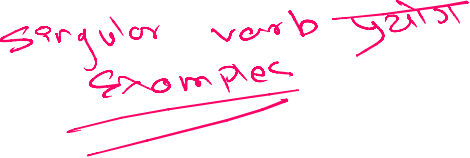 Singular verb प्रयोग
Examples